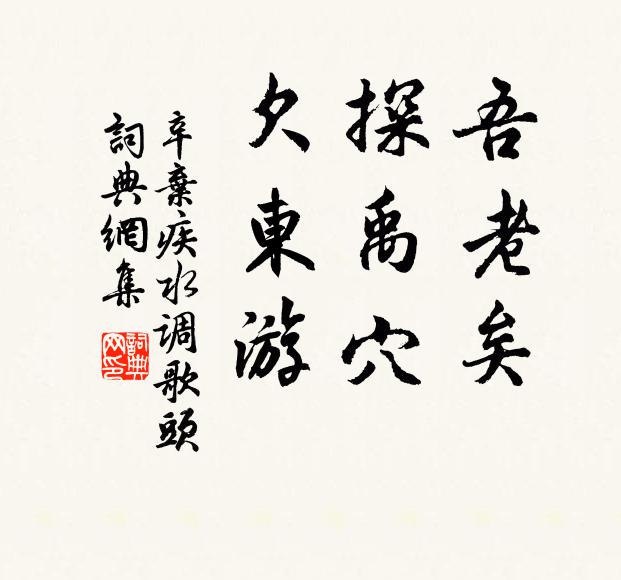 吾老矣
探禹穴
欠東游
辛棄疾水调歌頭
詞典網集
詞典網印